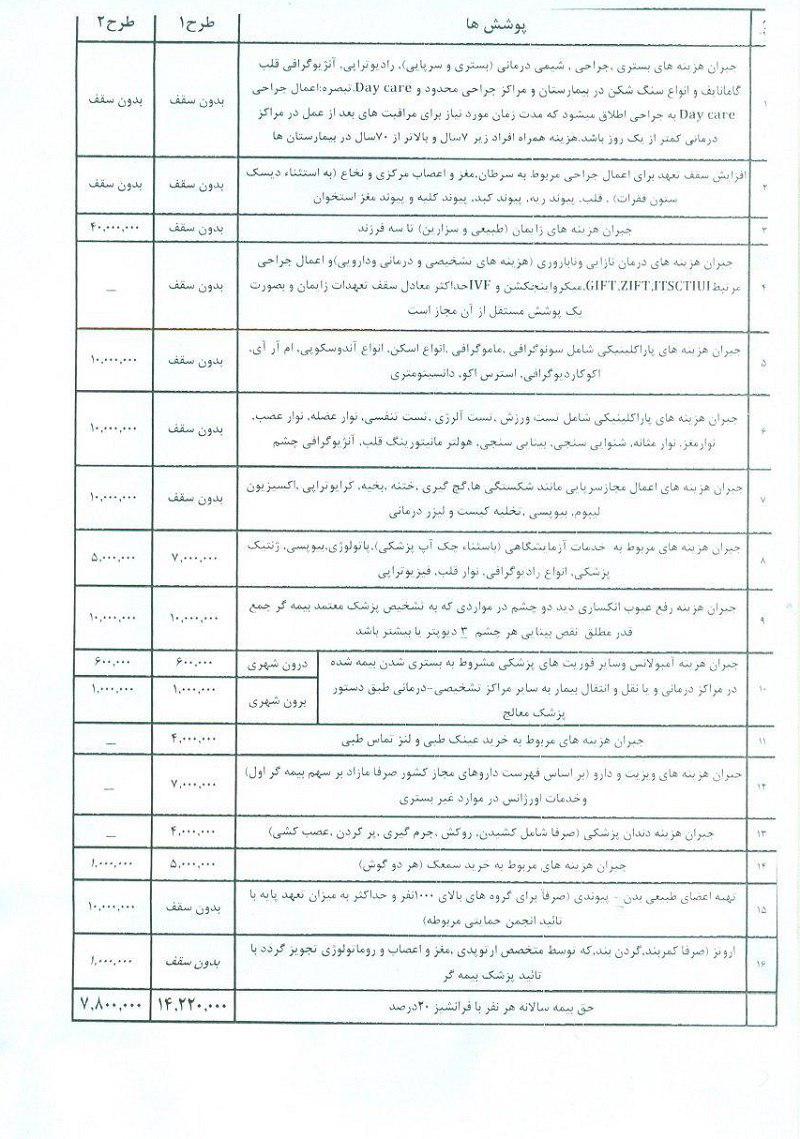 پوشش ها
طرح۱
طرح۲
۱
جبران هزینه های بستری ,جراحی , شیمی درمانی (بستری و سرپایی), رادیوتراپی, آنژیوگرافی قلب
گامانایف و انواع سنگ شکن در بیمارستان و مراکز جراحی محدود و Day care.تبصره:اعمال جراحی
Day care به جراحی اطلاق میشود که مدت زمان مورد نیاز برای مراقبت های بعد از عمل در مراکز
درمانی کمتر از یک روز باشد.هزینه همراه افراد زیر ۷سال و بالاتر از ۷۰سال در بیمارستان ها
بدون سقف
بدون سقف
۲
افزایش سقف تعهد برای اعمال جراحی مربوط به سرطان,مغز و اعصاب مرکزی و نخاع (به استثناء دیسک
ستون فقرات) , قلب, پیوند ریه, پیوند کبد, پیوند کلیه و پیوند مغز استخوان
بدون سقف
بدون سقف
۳
جبران هزینه های زایمان (طبیعی و سزارین) تا سه فرزند
بدون سقف
۴۰,۰۰۰,۰۰۰
۴
جبران هزینه های درمان نازایی وناباروری (هزینه های تشخیصی و درمانی ودارویی)و اعمال جراحی
مرتبط GIFT,ZIFT,ITSCTIUI,میکرواینجکشن و IVFحداکثر معادل سقف تعهدات زایمان و بصورت
یک پوشش مستقل از آن مجاز است
بدون سقف
_
۵
جبران هزینه های پاراکلینیکی شامل سونوگرافی ,ماموگرافی ,انواع اسکن, انواع آندوسکوپی, ام آر آی,
اکوکاردیوگرافی, استرس اکو, دانسیتومتری
بدون سقف
۱۰,۰۰۰,۰۰۰
۶
جبران هزینه های پاراکلینیکی شامل تست ورزش ,تست آلرژی ,تست تنفسی, نوار عضله, نوار عصب,
نوارمغز, نوار مثانه, شنوایی سنجی, بینایی سنجی, هولتر مانیتورینگ قلب, آنژیوگرافی چشم
بدون سقف
۱۰,۰۰۰,۰۰۰
۷
جبران هزینه های اعمال مجازسرپایی مانند شکستگی ها,گچ گیری ,ختنه ,بخیه, کرایوتراپی ,اکسیزیون
لیپوم, بیوپسی ,تخلیه کیست و لیزر درمانی
بدون سقف
۱۰,۰۰۰,۰۰۰
۸
جبران هزینه های مربوط به خدمات آزمایشگاهی (باستثناء چک آپ پزشکی),پاتولوژی,بیوپسی, ژنتیک
پزشکی, انواع رادیوگرافی, نوار قلب, فیزیوتراپی
۷,۰۰۰,۰۰۰
۵,۰۰۰,۰۰۰
۹
جبران هزینه رفع عیوب انکساری دید دو چشم در مواردی که به تشخیص پزشک معتمد بیمه گر جمع
قدر مطلق نقص بینایی هر چشم ۳ دیوپتر یا بیشتر باشد
۱۰,۰۰۰,۰۰۰
۱۰,۰۰۰,۰۰۰
۱۰
جبران هزینه آمبولانس وسایر فوریت های پزشکی مشروط به بستری شدن بیمه شده
در مراکز درمانی و یا نقل و انتقال بیمار به سایر مراکز تشخیصی-درمانی طبق دستور
پزشک معالج
درون شهری
۶۰۰,۰۰۰
۶۰۰,۰۰۰
برون شهری
۱,۰۰۰,۰۰۰
۱,۰۰۰,۰۰۰
۱۱
جبران هزینه های مربوط به خرید عینک طبی و لنز تماس طبی
۴,۰۰۰,۰۰۰
_
۱۲
جبران هزینه های ویزیت و دارو (بر اساس فهرست داروهای مجاز کشور صرفا مازاد بر سهم بیمه گر اول)
وخدمات اورژانس در موارد غیر بستری
۷,۰۰۰,۰۰۰
_
۱۳
جبران هزینه دندان پزشکی (صرفا شامل کشیدن, روکش, جرم گیری ,پر کردن ,عصب کشی)
۴,۰۰۰,۰۰۰
_
۱۴
جبران هزینه های مربوط به خرید سمعک (هر دو گوش)
۵,۰۰۰,۰۰۰
۱,۰۰۰,۰۰۰
۱۵
تهیه اعضای طبیعی بدن - پیوندی (صرفاً برای گروه های بالای ۱۰۰۰نفر و حداکثر به میزان تعهد پایه با
تائید انجمن حمایتی مربوطه)
بدون سقف
۱۰,۰۰۰,۰۰۰
۱۶
اروتز (صرفا کمربند,گردن بند,که توسط متخصص ارتوپدی ,مغز و اعصاب و روماتولوژی تجویز گردد با
تائید پزشک بیمه گر
بدون سقف
۱,۰۰۰,۰۰۰
حق بیمه سالانه هر نفر با فرانشیز ۲۰درصد
۱۴,۲۲۰,۰۰۰
۷,۸۰۰,۰۰۰